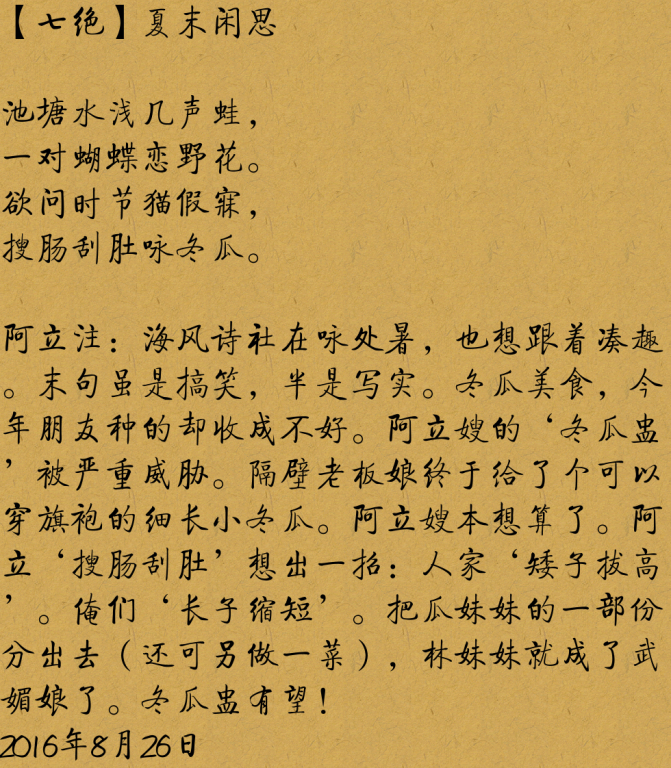 【七绝】夏末闲思
池塘水浅几声蛙，
一对蝴蝶恋野花。
欲问时节猫假寐，
搜肠刮肚咏冬瓜。
阿立注：海风诗社在咏处暑，也想跟着凑趣
。末句虽是搞笑，半是写实。冬瓜美食，今
年朋友种的却收成不好。阿立嫂的‘冬瓜盅
’被严重威胁。隔壁老板娘终于给了个可以
穿旗袍的细长小冬瓜。阿立嫂本想算了。阿
立‘搜肠刮肚’想出一招：人家‘矮子拔高
’。俺们‘长子缩短’。把瓜妹妹的一部份
分出去（还可另做一菜），林妹妹就成了武
媚娘了。冬瓜盅有望！
2016年8月26日